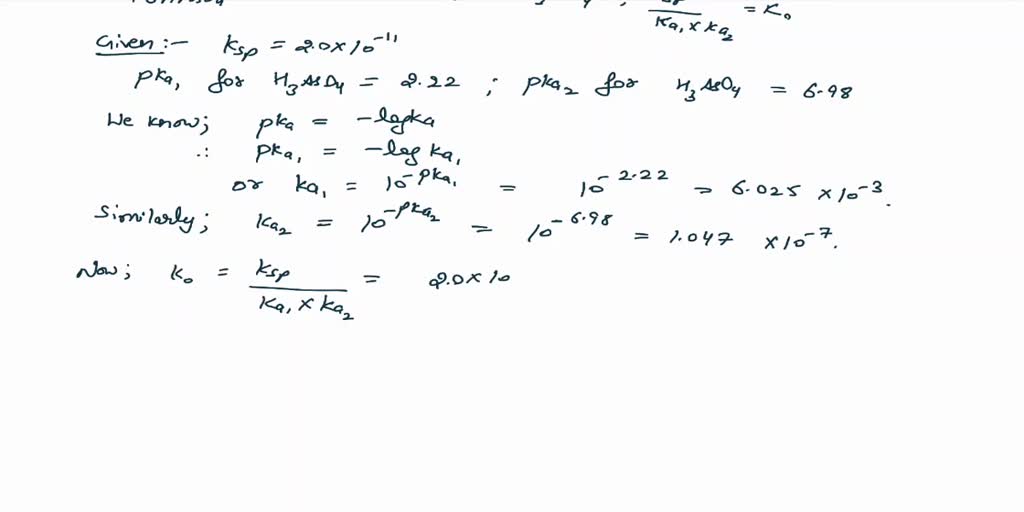 Ka₁ × Ka₂ = K₀
Given :- Ksp = 2.0 × 10⁻¹¹
pKa₁ for H₃AsO₄ = 2.22 ; pKa₂ for H₃AsO₄ = 6.98
We know; pka = -logka
∴ pka₁ = -log ka₁
or ka₁ = 10^-pka₁ = 10^-2.22 = 6.025 × 10⁻³.
Similarly; Ka₂ = 10^-pka₂ = 10^-6.98 = 1.047 × 10⁻⁷.
Now; K₀ = Ksp / Ka₁ × Ka₂ = 2.0 × 10